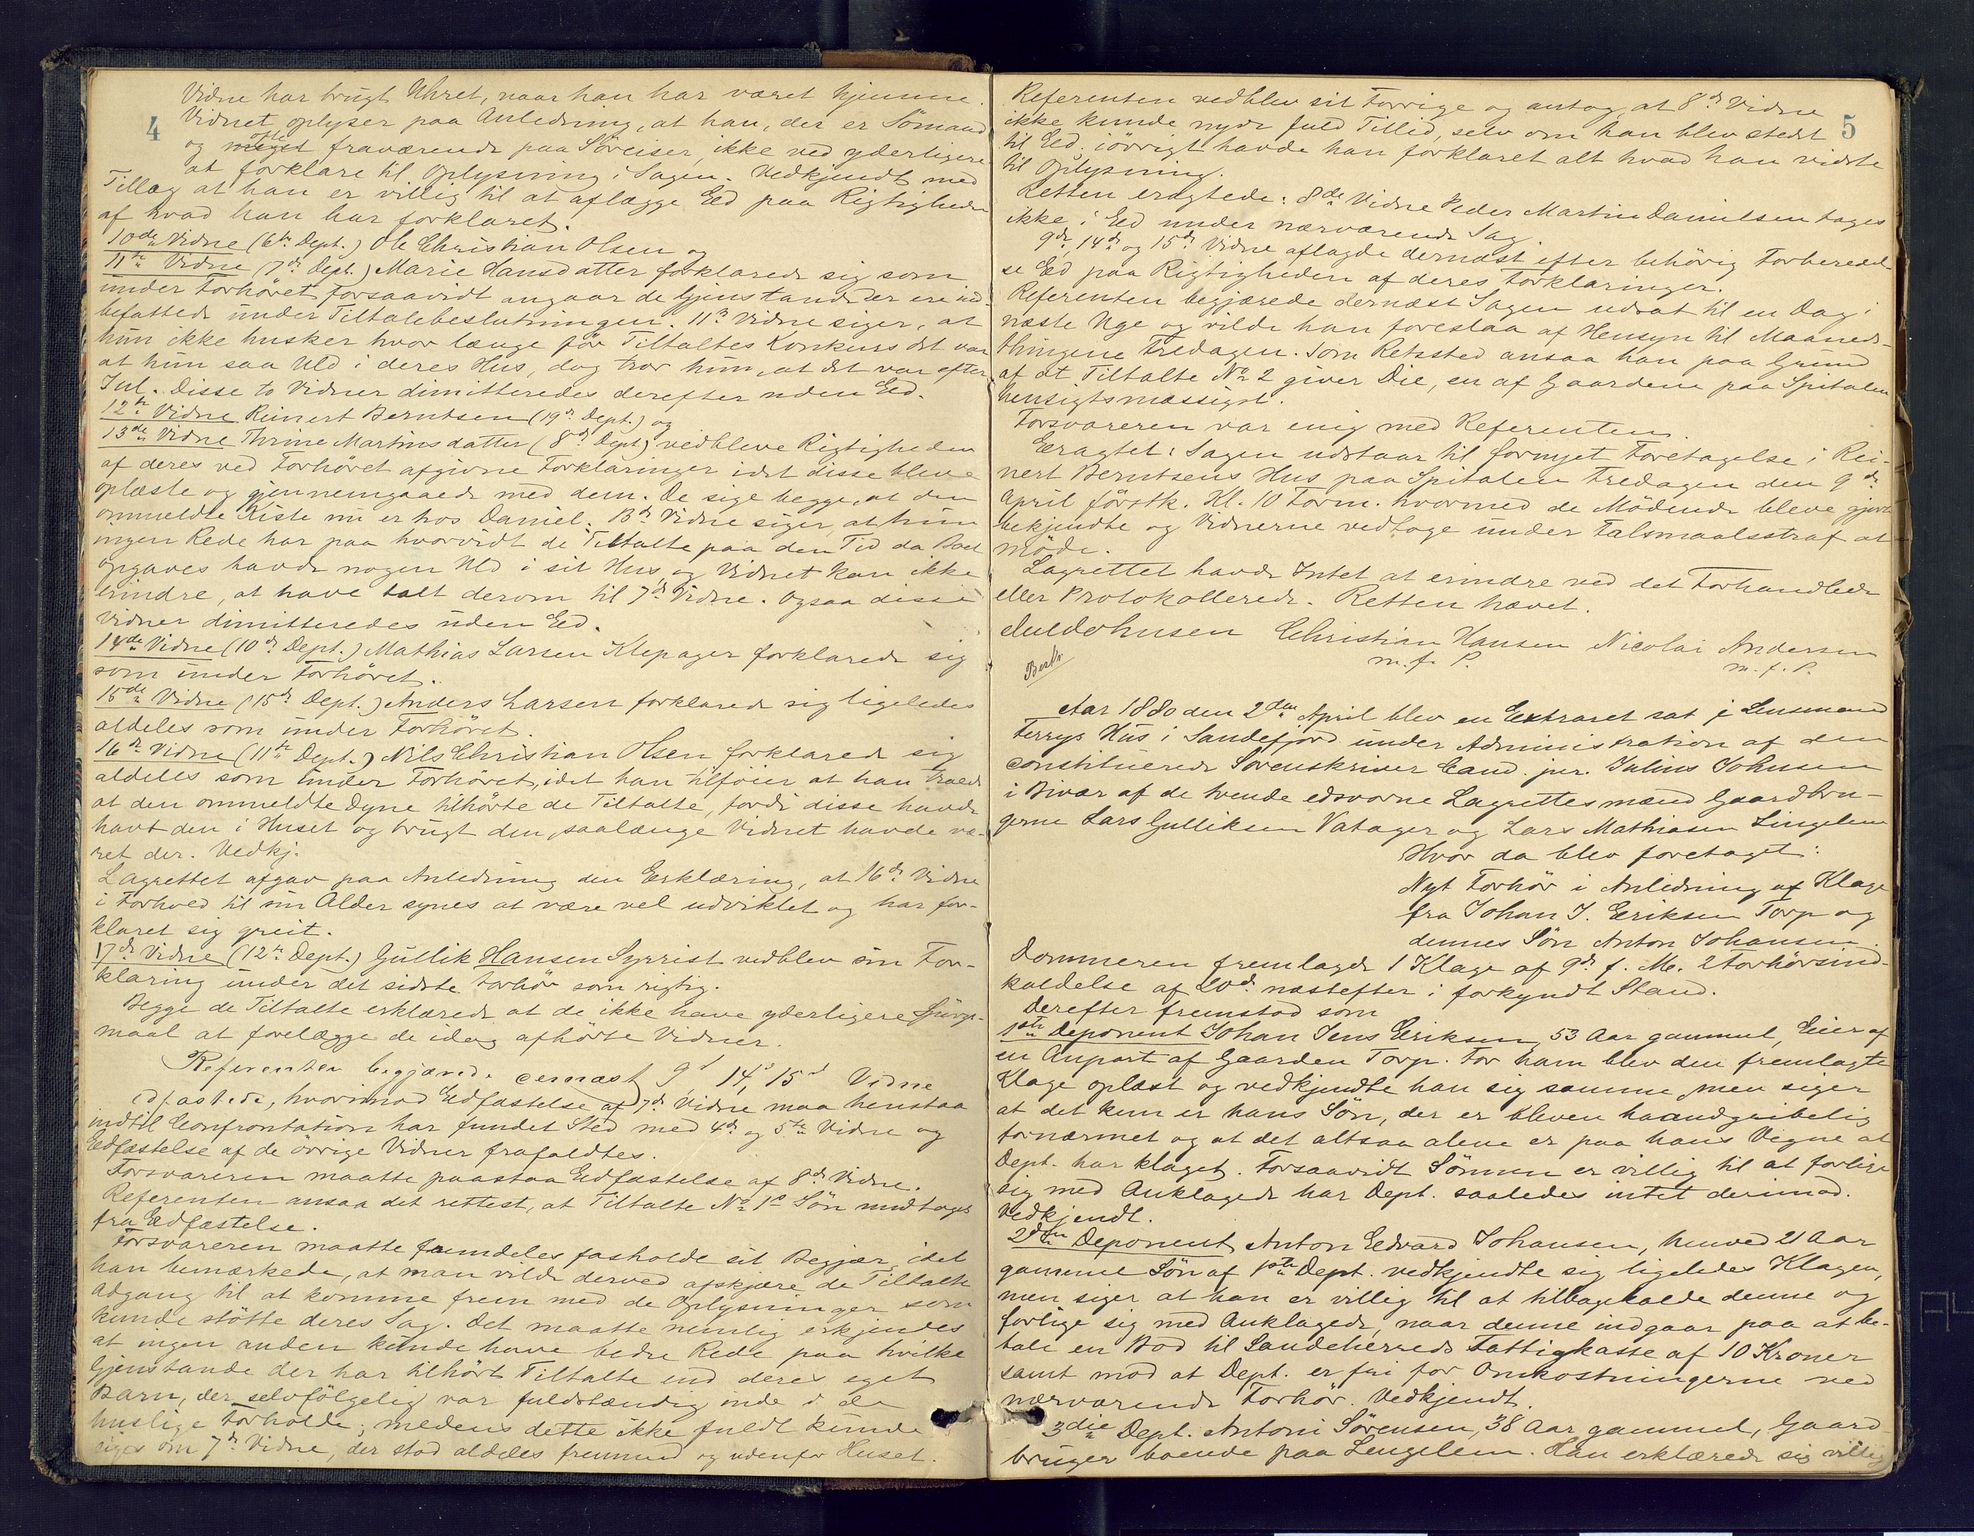 4
Vidne har brugt Uhret, naar han har været hjemme.
Vidnet oplyser paa Anledning, at han, der er Sømand
og meget ofte fraværende paa Søreiser, ikke ved yderligere
at forklare til Oplysning i Sagen. Vedkjendt med
Tillæg at han er villig til at aflægge Eed paa Rigtigheden
af hvad han har forklaret.
10de Vidne (6te Dept.) Ole Christian Olsen og
11te Vidne (7de Dept.) Marie Hansdatter forklarede sig som
under Forhøret forsaavidt angaar de Gjenstande der ere ind-
befattede under Tiltalebeslutningen. 11te Vidne siger, at
hun ikke husker hvor længe før Tiltaltes Konkurs det var
at hun saa Uld i deres Hus, dog tror hun, at det var efter
Jul. Disse to Vidner dimitteredes derefter uden Eed.
12te Vidne Reinert Berntsen (19de Dept.) og
13de Vidne Thrine Martinsdatter (8de Dept) vedbleve Rigtigheden
af deres ved Forhøret afgivne Forklaringer idet disse bleve
oplæste og gjennemgaaede med dem. De sige begge, at den
ommeldte Kiste nu er hos Daniel. 13de Vidne siger, at hun
ingen Rede har paa hvorvidt de Tiltalte paa den Tid da Boet
opgaves havde nogen Uld i sit Hus, og Vidnet kan ikke
erindre, at have talt derom til 7de Vidne. Ogsaa disse
Vidner dimitteredes uden Eed.
14de Vidne (10de Dept.) Mathias Larsen Klepager forklarede sig
som under Forhøret.
15de Vidne (15de Dept.) Anders Larsen forklarede sig ligeledes
aldeles som under Forhøret.
16de Vidne (11te Dept.) Nils Christian Olsen forklarede sig
aldeles som under Forhøret, idet han tilføier at han troede
at den ommeldte Dyne tilhørte de Tiltalte, fordi disse havde
havt den i Huset og brugt den, saalænge Vidnet havde væ-
ret der. Vedkj.
Lagrettet afgav paa Anledning den Erklæring, at 16de Vidne
i Forhold til sin Alder synes at være vel udviklet og har for-
klaret sig greit.
17de Vidne (12te Dept.) Gullik Hansen Syrrist vedblev sin For-
klaring under det sidste Forhør som rigtig.
Begge de Tiltalte erklærede at de ikke have yderligere Spørgs-
maal at forelægge de idag afhørte Vidner.
Referenten begjærede dernæst 9de, 14de, 15de Vidne
edfæstede, hvorimod Edfæstelse af 7de Vidne maa henstaa
indtil Confrontation har fundet Sted med 4de og 5te Vidne og
Edfæstelse af de øvrige Vidner frafaldtes.
Forsvareren maatte paastaa Edfæstelse af 8de Vidne.
Referenten ansaa det rettest, at Tiltalte No 1s Søn undtages
fra Edfæstelse.
Forsvareren maatte fremdeles fastholde sit Begjær, idet
han bemærkede, at man vilde derved afskjære de Tiltalte
Adgang til at komme frem med de Oplysninger som
kunde støtte deres Sag. Det maatte nemlig erkjendes
at ingen anden kunde have bedre Rede paa hvilke
Gjenstande der har tilhørt Tiltalte end deres eget
Barn, der selvfølgelig var fuldstændig inde i de
huslige Forholde; medens dette ikke fuldt kunde
siges om 7de Vidne, der stod aldeles fremmed og udenfor Huset.
5
Referenten vedblev sit Forrige og antog, at 8de Vidne
ikke kunde nyde fuld Tillid, selv om han blev stedt
til Eed; iøvrigt havde han forklaret alt hvad han vidste
til Oplysning.
Retten eragtede: 8de Vidne Peder Martin Danielsen tages
ikke i Eed under nærværende Sag.
9de, 14de og 15de Vidne aflagde dernæst efter behørig Forberedel-
se Eed paa Rigtigheden af deres Forklaringer.
Referenten begjærede dernæst Sagen udsat til en Dag i
næste Uge og vilde han foreslaa af Hensyn til Maaneds-
thingene Fredagen. Som Retssted ansaa han paa Grund
af at Tiltalte No 2 giver Die, en af Gaardene paa Spitalen
hensigtsmæssigst.
Forsvareren var enig med Referenten.
Eragtet: Sagen udstaar til fornyet Foretagelse i Rei-
nert Berntsens Hus paa Spitalen Fredagen den 9de
April førstk. Kl. 10 Form. hvormed de Mødende bleve gjort
bekjendte og Vidnerne vedtoge under Falsmaalsstraf at
møde.
Lagrettet havde Intet at erindre ved det Forhandlede
eller Protokollerede. Retten hævet.
Jul Johnsen Christian Hansen Nicolai Andersen
m. f. P. m. f. P.
Aar 1880 den 2den April blev en Extraret sat i Lensmand
Ferrys Hus i Sandefjord under Administration af den
constituerede Sorenskriver Cand. jur. Julius Johnsen
i Bivær af de tvende edsvorne Lagrettesmænd Gaardbru-
gerne Lars Gulliksen Vatager og Lars Mathiasen Lingelem
Hvor da blev foretaget:
Nyt Forhør i Anledning af Klage
fra Johan J. Eriksen Torp og
dennes Søn Anton Johansen.
Dommeren fremlagde 1 Klage af 9de f. M. 2 Forhørsind-
kaldelse af 20de næstefter i forkyndt Stand.
Derefter fremstod som
1ste Deponent Johan Jens Eriksen, 53 Aar gammel, Eier af
en Anpart af Gaarden Torp. For ham blev den fremlagte
Klage oplæst og vedkjendte han sig samme, men siger
at det kun er hans Søn, der er bleven haandgribelig
fornærmet og at det altsaa alene er paa hans Vegne at
Dept. har klaget. Forsaavidt Sønnen er villig til at forlige
sig med Anklagede har Dept. saaledes intet derimod.
Vedkjendt.
2den Deponent Anton Edvard Johansen, henved 21 Aar
gammel Søn af 1ste Dept. vedkjendte sig ligeledes Klagen,
men siger at han er villig til at tilbagekalde denne og
forlige sig med Anklagede, naar denne indgaar paa at be-
tale en Bod til Sandeherreds Fattigkasse af 10 Kroner
samt mod at Dept. er fri for Omkostningerne ved
nærværende Forhør. Vedkjendt.
3die Dept. Antoni Sørensen, 38 Aar gammel, Gaard-
bruger boende paa Lengelem. Han erklærede sig villig